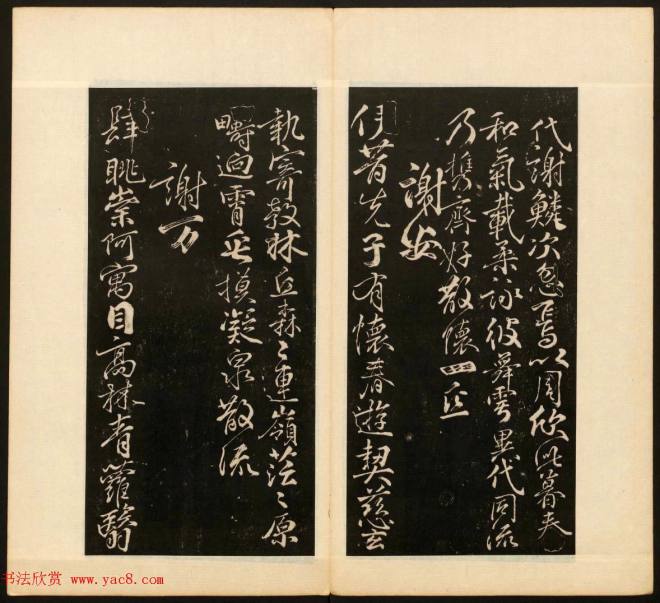 代謝鱗次忽焉以周欣此暮
和氣載柔詠彼舞雩異代同流
乃攜齊好散懷一丘
謝安
伊昔先子有懷春遊契慈言
執寄敖林丘森〻連嶺茫〻原
疇迥霄垂模凝泉散流
謝万
肆眺崇阿寓目高林青蘿翳
书法欣赏 www.yac8.com